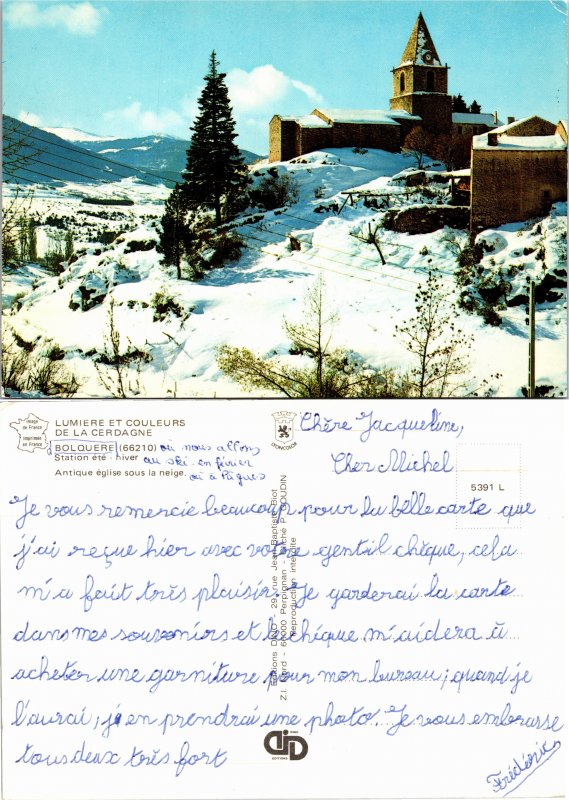 image de France
imprimée en France
LUMIERE ET COULEURS
DE LA CERDAGNE
BOLQUERE (66210) où nous allons
Station été - hiver au ski en février
Antique église sous la neige. où à Pâques
D'ONCOLOR
5391 L
Chère Jacqueline,
Cher Michel
Je vous remercie beaucoup pour la belle carte que
j'ai reçue hier avec votre gentil chèque, cela
m'a fait très plaisir. Je garderai la carte
dans mes souvenirs et le chèque m'aidera à
acheter une garniture pour mon bureau; quand je
l'aurai, j'en prendrai une photo. Je vous embrasse
tous deux très fort
Frédéric
Editions DINO - 29, rue Jean-Baptiste Biot
Z.I. Nord - 66000 Perpignan
Reproduction interdite
EDITIONS